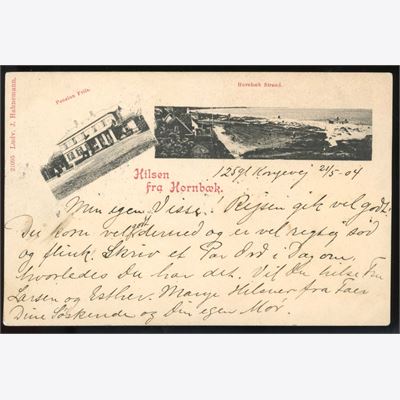 Pension Friis.
Hornbæk Strand.
2195 Ludv. J. Hahnemann.
Hilsen
fra Hornbæk.
Kongevej 21/5-04
Min egen Visse! Rejsen gik vel godt,
Du kom vel dermed og er vel rigtig sød
og flink. Skriv et Par Ord i Dag om,
hvorledes Du har det. Vil Du hilse Fru
Larsen og Esther. Mange Hilsner fra Faer
Dine Søskende og Din egen Mor.